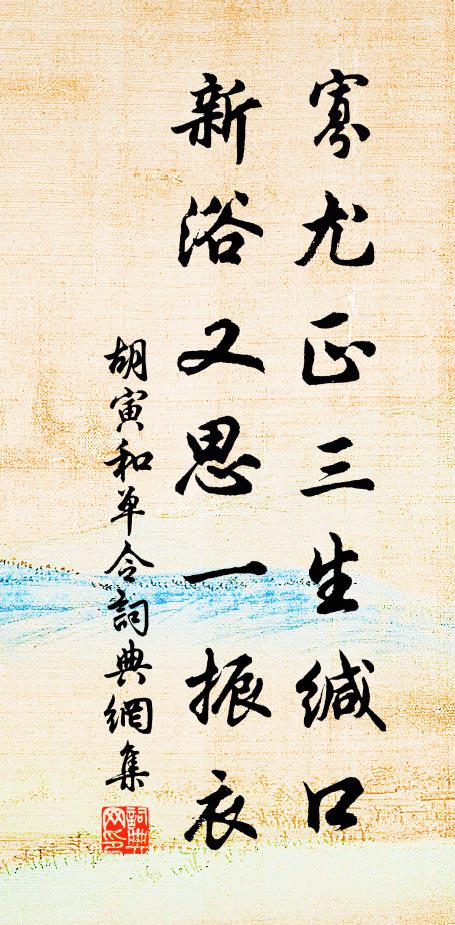 寡尤正三生緘口
新浴又思一振衣
胡寅和单令詞典網集
詞典網印